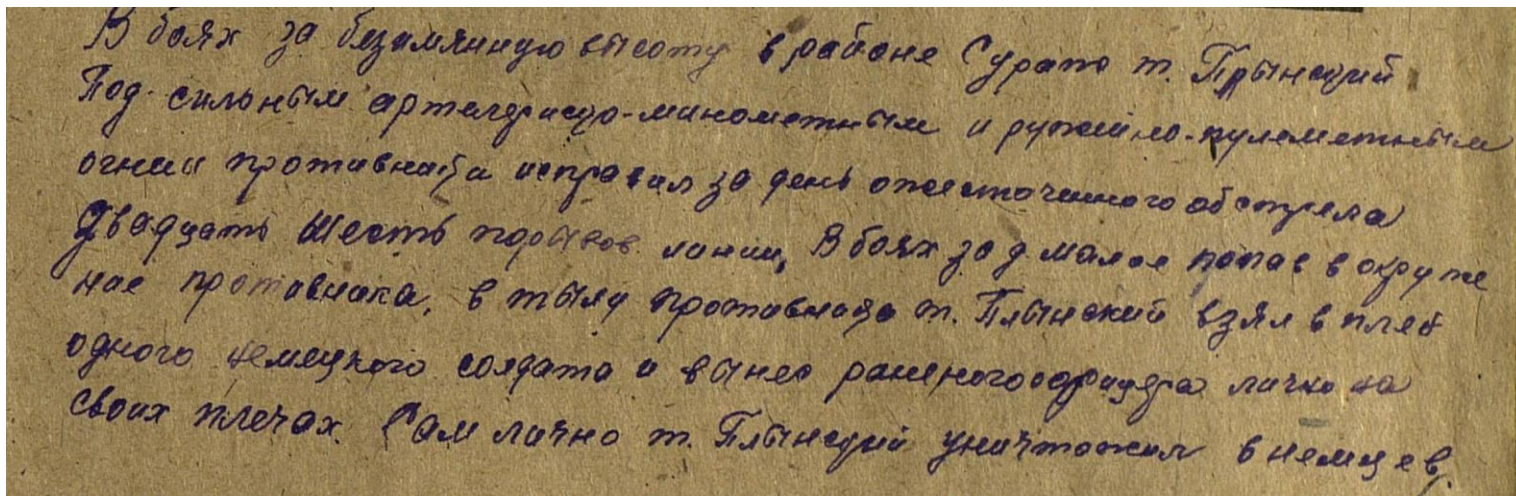 В боях за безимянную высоту в районе Сурато т. Плынский
Под сильным артилериско-минометным и ружейно-пулеметным
огнем противника исправил за день ожесточенного обстрела
двадцать шесть порывов линии, В боях за д. Малое попав в окруже
ние противника, в тылу противника т. Плынский взял в плен
одного немецкого солдата и вынес раненого офицера лично на
своих плечах. Сам лично т. Плынский уничтожил 8 немцев.